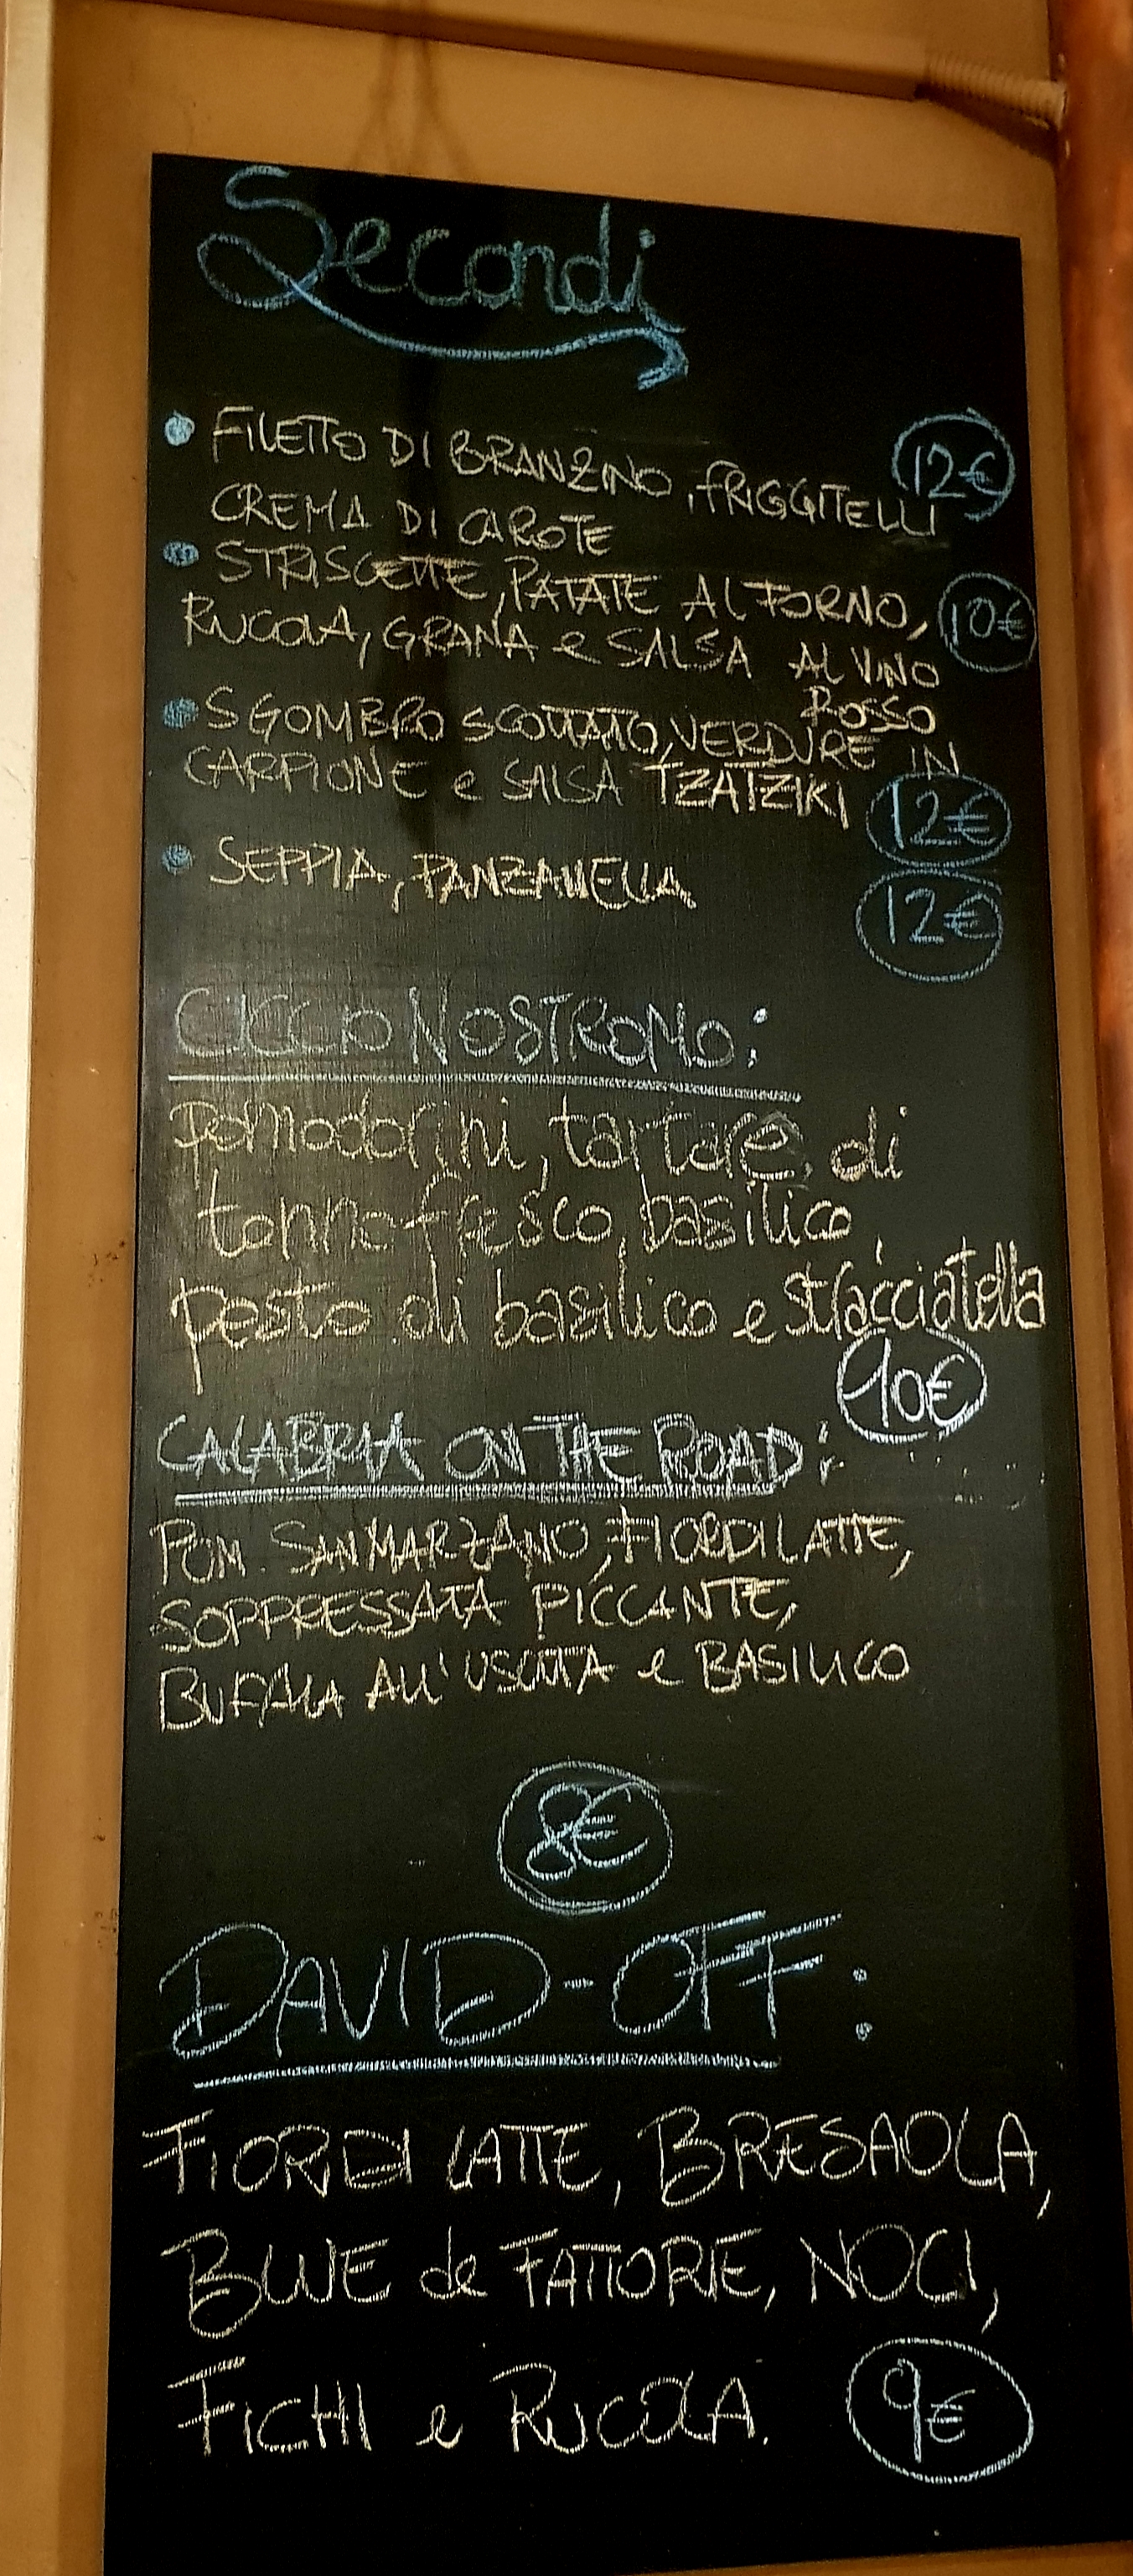 Secondi
• FILETTO DI BRANZINO, FRIGGITELLI 12€
CREMA DI CAROTE
• STRISCETTE, PATATE AL FORNO, 10€
RUCOLA, GRANA e SALSA AL VINO
ROSSO
• SGOMBRO SCOTTATO, VERDURE IN
CARPIONE e SALSA TZATZIKI 12€
• SEPPIA, PANZANELLA 12€
CICCIO NOSTROMO:
pomodorini, tartare di
tonno fresco, basilico,
pesto di basilico e stracciatella
10€
CALABRIA ON THE ROAD:
POM. SAN MARZANO, FIORDILATTE,
SOPPRESSATA PICCANTE,
BUFALA ALL'USCITA e BASILICO
8€
DAVID-OFF:
FIORDI LATTE, BRESAOLA,
BLUE de FATTORIE, NOCI,
FICHI e RUCOLA. 9€